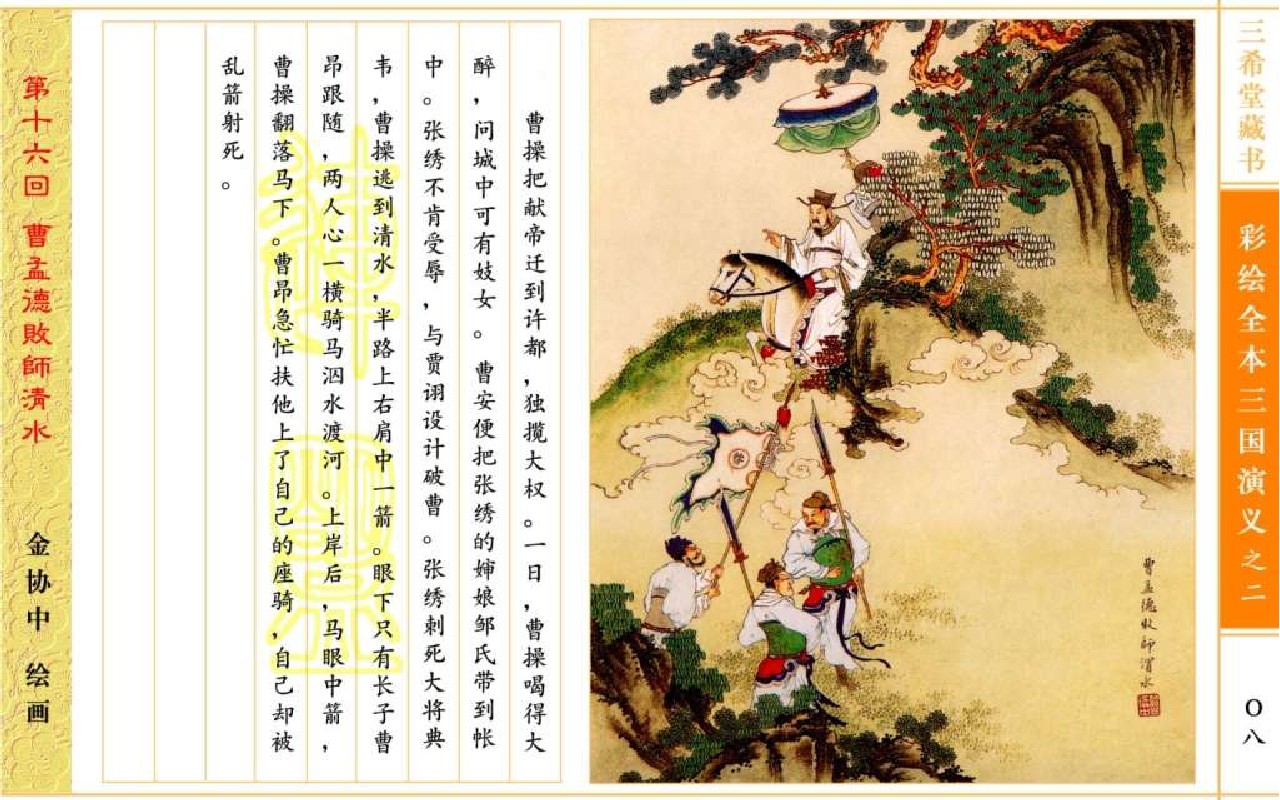 三希堂藏书
彩绘全本三国演义之二
〇八
曹孟德败師淯水
曹操把献帝迁到许都，独揽大权。一日，曹操喝得大
醉，问城中可有妓女。曹安便把张绣的婶娘邹氏带到帐
中。张绣不肯受辱，与贾诩设计破曹。张绣刺死大将典
韦，曹操逃到清水，半路上右肩中一箭。眼下只有长子曹
昂跟随，两人心一横骑马泅水渡河。上岸后，马眼中箭，
曹操翻落马下。曹昂急忙扶他上了自己的座骑，自己却被
乱箭射死。
第十六回 曹孟德敗師淯水
金协中 绘画